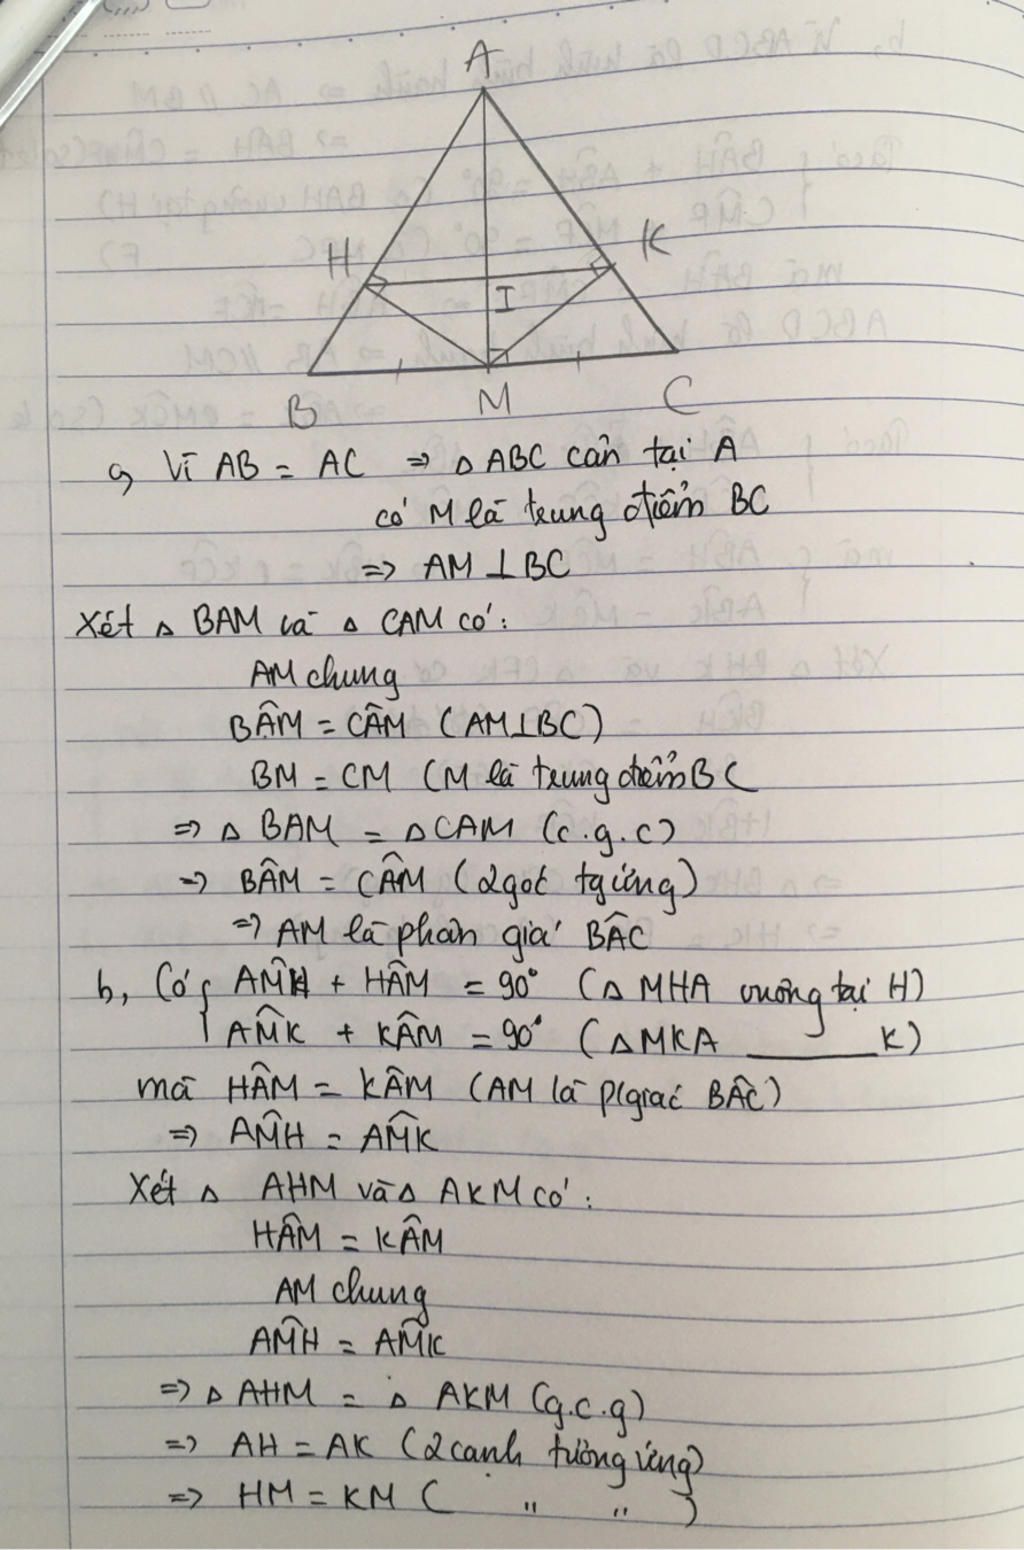 A
H
K
I
B
M
C
a, Vì AB = AC => △ ABC cân tại A
có M là trung điểm BC
=> AM ⊥ BC
Xét △ BAM và △ CAM có:
AM chung
BÂM = CÂM (AM⊥BC)
BM = CM (M là trung điểm BC
=> △ BAM = △CAM (c.g.c)
=> BÂM = CÂM (2 goc tg ứng)
=> AM là phân giá BÂC
b, Có { AM̂H + HÂM = 90° (△ MHA vuông tại H)
AM̂K + KÂM = 90° (△MKA ______ K)
mà HÂM = KÂM (AM là p/giác BÂC)
=> AM̂H = AM̂K
Xét △ AHM và △ AKM có:
HÂM = KÂM
AM chung
AM̂H = AM̂K
=> △ AHM = △ AKM (g.c.g)
=> AH = AK (2 cạnh tương ứng)
=> HM = KM ( " " )